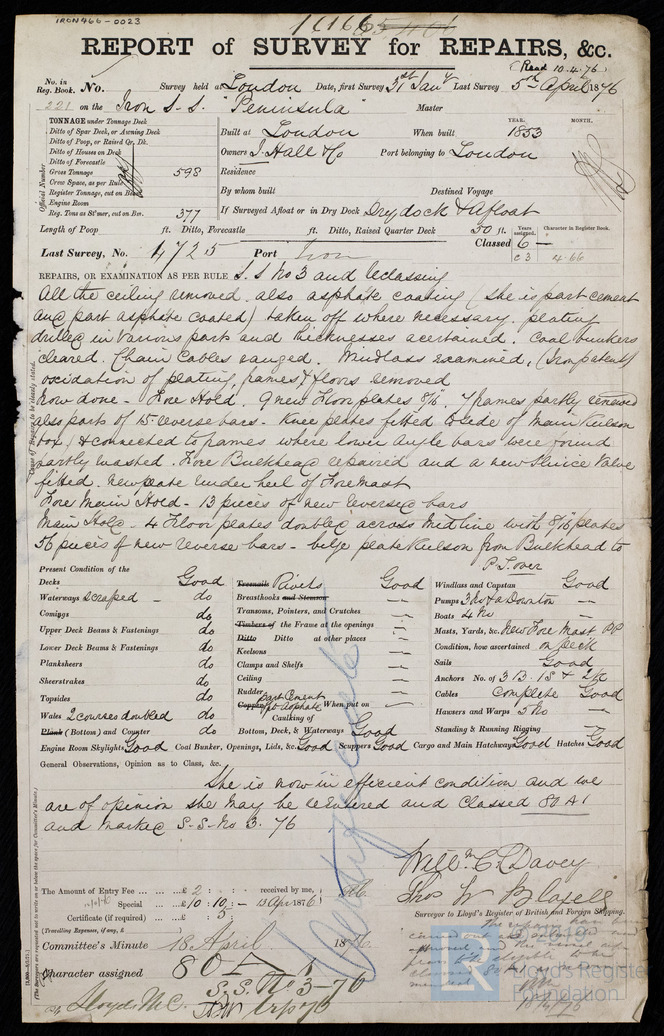 IRON466-0023
REPORT of SURVEY for REPAIRS, &c.
(Read 10.4.76)
No. in Reg. Book. No. Survey held at London Date, first Survey 31st Jany Last Survey 5th April 1876
221 on the Iron S.S. "Peninsula" Master
TONNAGE under Tonnage Deck
Ditto of Spar Deck, or Awning Deck
Ditto of Poop, or Raised Qr. Dk.
Ditto of Houses on Deck
Ditto of Forecastle
Gross Tonnage 598
Crew Space, as per Rule
Register Tonnage, cut on Beam
Engine Room
Reg. Tons as St'mer, cut on Bm. 377
Official Number
YEAR. MONTH.
Built at London When built 1853
Owners J. Hall & Co Port belonging to London
Residence
By whom built Destined Voyage
If Surveyed Afloat or in Dry Dock Drydock & Afloat
Length of Poop ft. Ditto, Forecastle ft. Ditto, Raised Quarter Deck 50 ft.
Years assigned. Character in Register Book.
Classed 6 —
4.66
Last Survey, No. 4725 Port Iron
REPAIRS, OR EXAMINATION AS PER RULE S.S No 3 and Reclassing
All the ceiling removed also asphate coating (she is part cement
and part asphate coated) taken off where necessary. plating
drilled in various parts and thicknesses ascertained. Coal bunkers
cleared. Chain Cables ranged. Windlass examined, (Iron patent)
oxidation of plating, frames & floors removed
Now done - Fore Hold. 9 new Floor plates 8/16. 7 frames partly renewed
also parts of 15 reverse bars. Knee plates fitted to side of Main Keelson
box, & connected to frames where lower angle bars were found
partly wasted. Fore Bulkhead repaired and a new Sluice Valve
fitted. new plate under heel of Foremast
Fore Main Hold - 13 pieces of new reversed bars
Main Hold. 4 Floor plates doubled across mid line with 8/16 plates
56 pieces of new reverse bars - bilge plate Keelson from Bulkhead to
P.T. over
Present Condition of the
Decks Good
Waterways scraped - do
Comings do
Upper Deck Beams & Fastenings do
Lower Deck Beams & Fastenings do
Planksheers do
Sheerstrakes do
Topsides do
Wales 2 courses doubled do
Plank (Bottom) and Counter do
Treenails Rivets Good
Breasthooks and Stemson —
Transoms, Pointers, and Crutches
Timbers of the Frame at the openings
Ditto Ditto at other places
Keelsons
Clamps and Shelfs
Ceiling
Rudder
Copper part Cement pt Asphate When put on
Caulking of
Bottom, Deck, & Waterways Good
Windlass and Capstan Good
Pumps 3 No & a Downton —
Boats 4 No —
Masts, Yards, &c. New Fore Mast PP
Condition, how ascertained on Deck
Sails Good
Anchors No. of 3 B. 1S & 2 K
Cables Complete Good
Hawsers and Warps 5 No —
Standing & Running Rigging —
Engine Room Skylights Good Coal Bunker, Openings, Lids, &c. Good Scuppers Good Cargo and Main Hatchway Good Hatches Good
General Observations, Opinion as to Class, &c.
She is now in efficient condition and we
are of opinion she may be reEntered and Classed 80 A1
and marked S.S. No 3. 76
Certificate
Willm C. L. Davey
Thos W Blaxell
Surveyor to Lloyd's Register of British and Foreign Shipping.
The Amount of Entry Fee ... ... £ 2 : : - received by me,
Special ... £ 10 : 10 : - 13 Apr 1876
Certificate (if required) ... : 5 :
(Travelling Expenses, if any, £ )
Committee's Minute 18 April 1876.
Character assigned 80 A 1
S.S. No 3-76
Lloyds M.C.
LR-2019
Lloyd's Register
Foundation